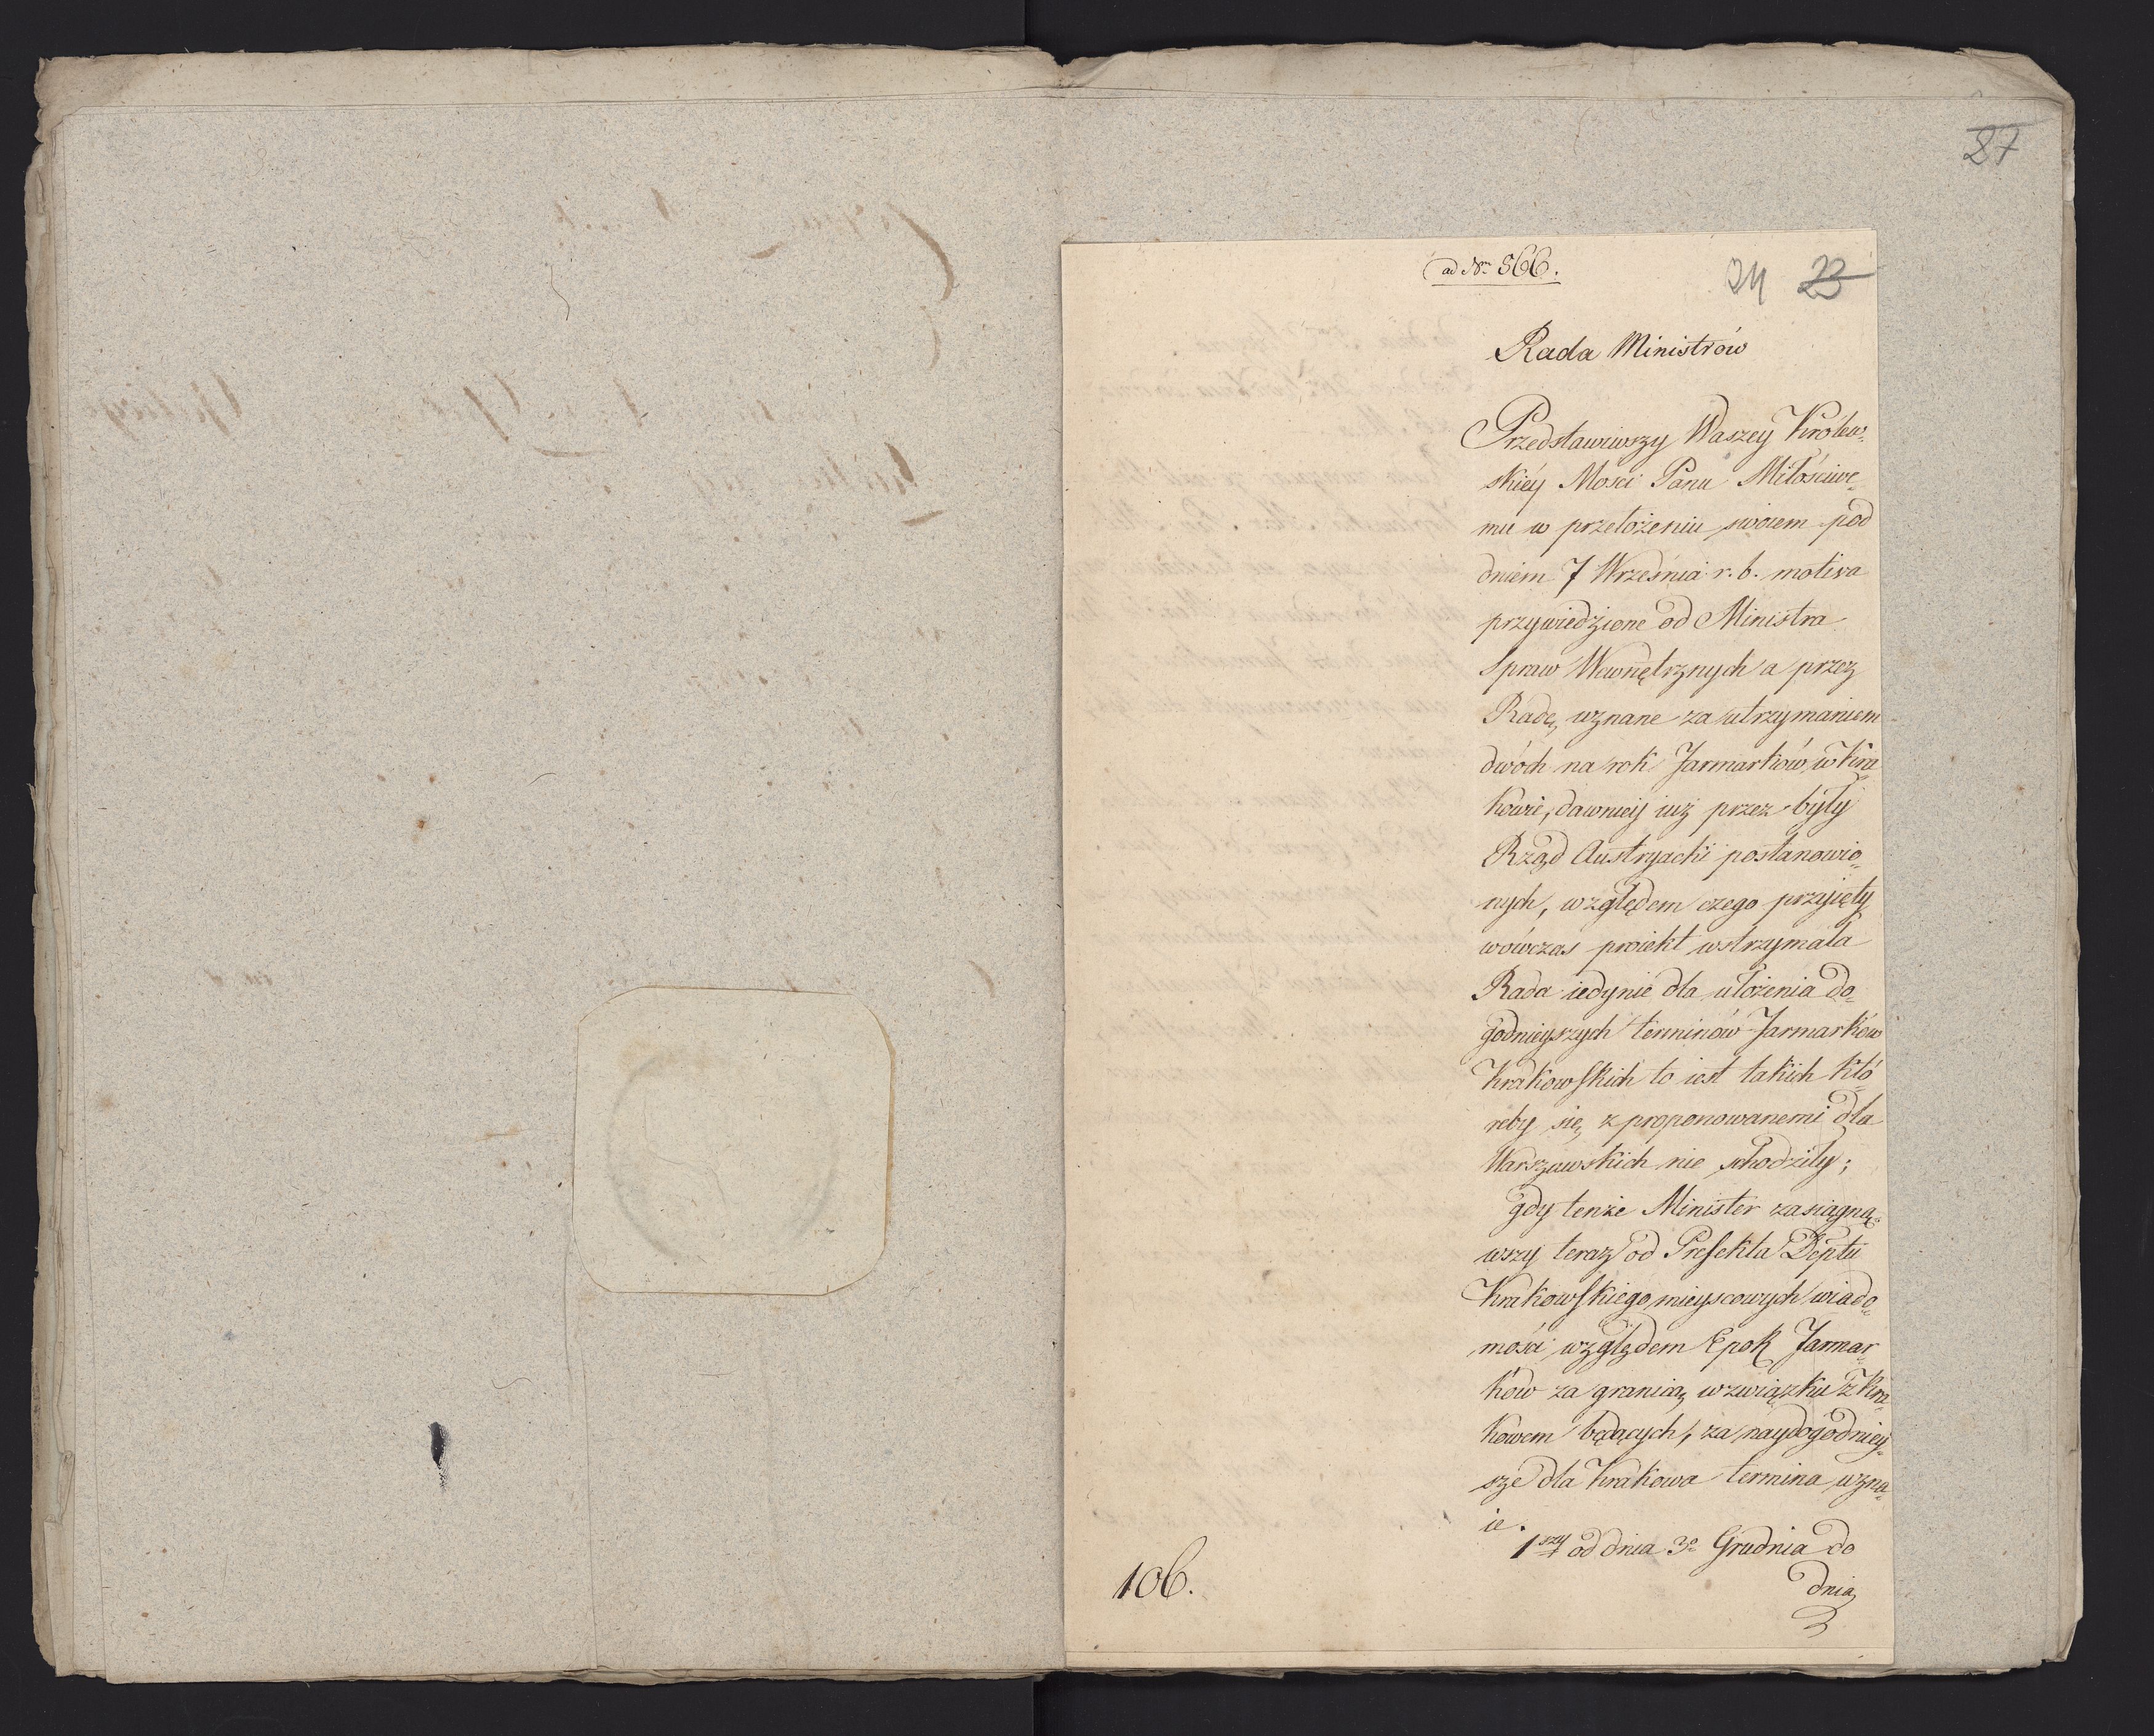 27
ad Nrm 566.
24 23
Rada Ministrów
Przedstawiwszy Waszey Królew„
skiey Mosci Panu Miłościwe„
mu w przełożeniu swoiem pod
dniem 7 Września r. b. motiva
przywiedzione od Ministra
Spraw Wewnętrznych a przez
Radę uznane za utrzymaniem
dwóch na rok Jarmarków w Kra„
kowie, dawniey iuż przez były
Rząd Austryacki postanowio„
nych, względem czego przyięty
wówczas proiekt wstrzymała
Rada iedynie dla ułożenia do„
godnieyszych terminów Jarmarków
Krakowskich to iest takich któ„
reby się z proponowanemi dla
Warszawskich nie schodziły;
gdy tenże Minister zasiągną„
wszy teraz od Prefekta Deptu
Krakowskiego mieyscowych wiado„
mości względem Epok Jarmar„
ków za granicą w związku z Kra„
kowem będących, za naydogodniey„
sze dla Krakowa termina uzna„
ie.
1szy od dnia 3o Grudnia do
dnia
106.